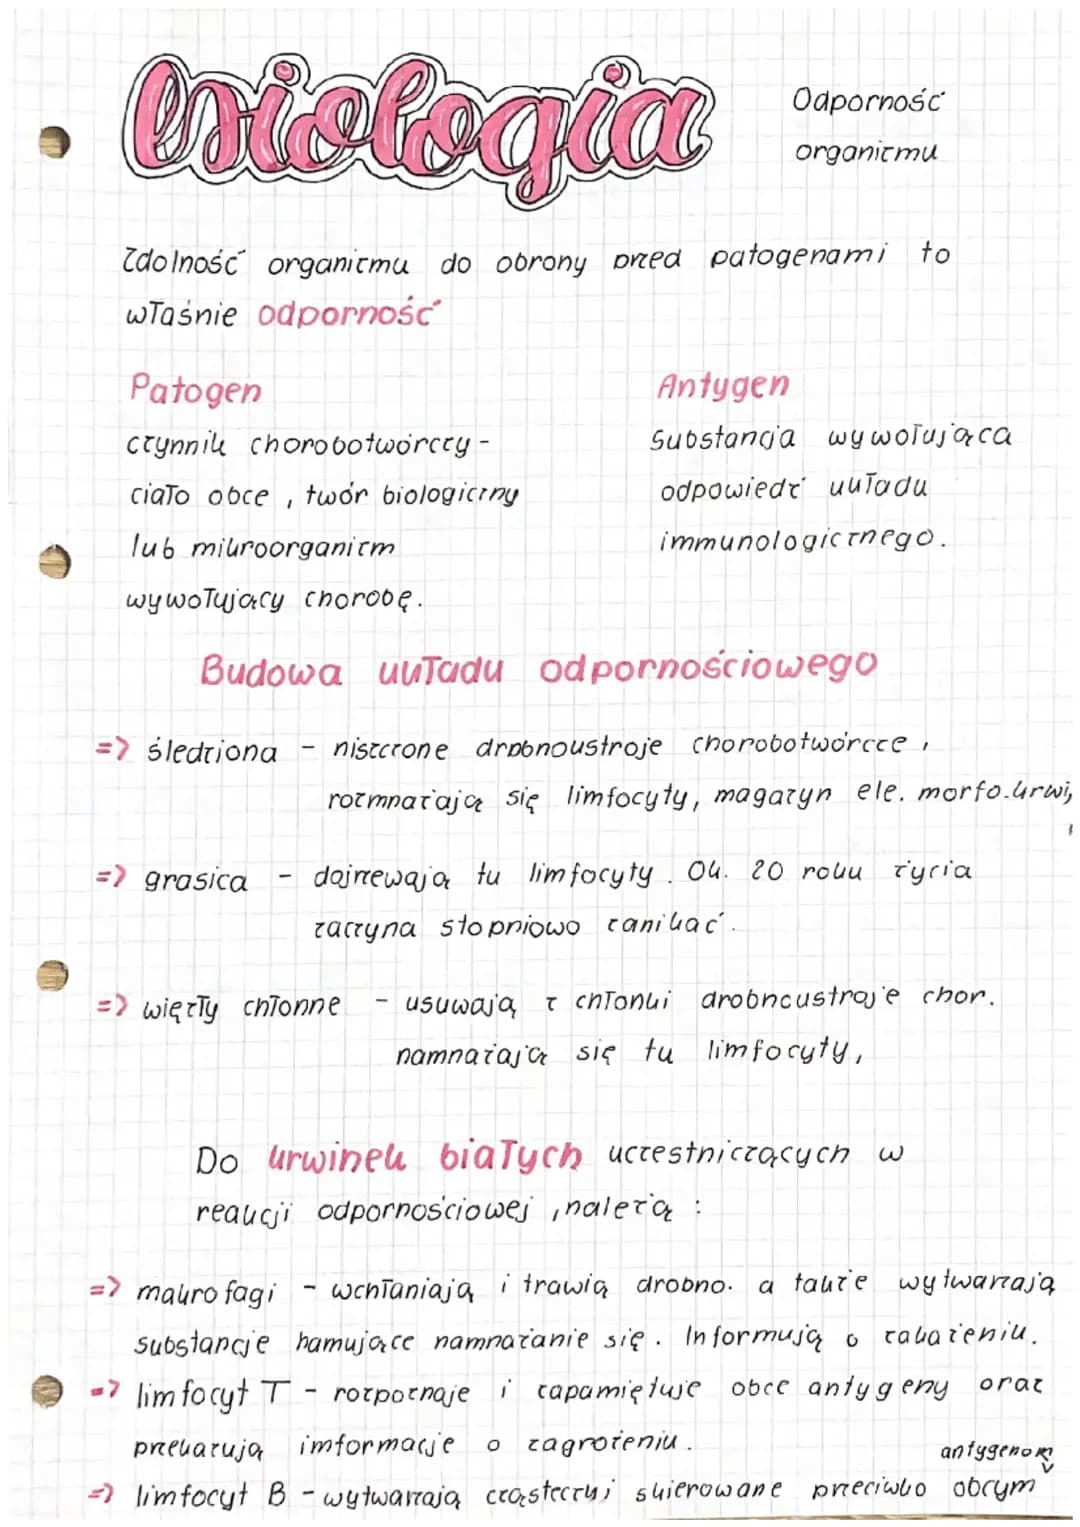 biologia
Odporność
organizmu
Zdolność organizmu do obrony przed patogenami to
właśnie odporność
Patogen
czynnik chorobotwórczy -
ciało obce, twór biologiczny
lub mikroorganizm
wywołujący chorobę.
Antygen
Substancja wywołująca
odpowiedź układu
immunologicznego.
Budowa układu odpornościowego
=> śledziona - niszczone drobnoustroje chorobotwórcze,
rozmnażają się limfocyty, magazyn ele. morfo.krwi,
=> grasica - dojrzewają tu limfocyty. Ok. 20 roku życia
zaczyna stopniowo zanikać.
=> węzły chłonne - usuwają z chłonki drobnoustroje chor.
namnażają się tu limfocyty,
Do krwinek białych uczestniczących w
reakcji odpornościowej, należą :
=> makrofagi - wchłaniają i trawią drobno. a także wytwarzają
substancje hamujące namnażanie się. Informują o zakażeniu.
=> limfocyt T - rozpoznaje i zapamiętuje obce antygeny oraz
przekazują imformacje o zagrożeniu.
=> limfocyt B - wytwarzają cząsteczki skierowane przeciwko obcym antygenom